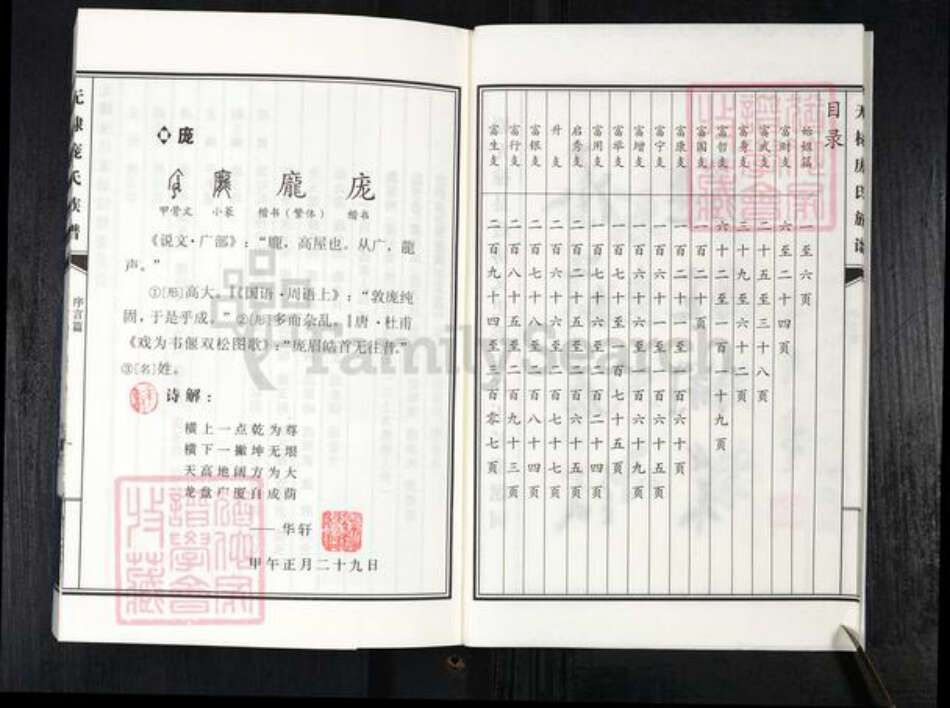 目录
始祖篇 一至六页
富财支 六至二十四页
富武支 二十五至三十八页
富寿支 三十九至六十二页
富哲支 六十二至一百一十九页
富国支 一百二十页
富康支 一百六十一至一百六十页
富宁支 一百六十一至一百六十五页
富增支 一百六十六至一百六十九页
富举支 一百七十至一百七十五页
富用支 一百
启秀支 二百
升支 二百
富银支 二百七十八至二百八十四页
富行支 二百八十五至二百九十三页
富生支 二百九十四至三百零七页
无棣庞氏族谱
无棣庞氏族谱
序言篇
庞
龎 龐 庞
甲骨文 小篆 楷书（繁体） 楷书
《说文·广部》：“龐，高屋也。从广，龍
声。”
①[形]高大。‖《国语·周语上》：“敦庞纯
固，于是乎成。”②[形]多而杂乱。‖唐·杜甫
《戏为韦偃双松图歌》：“庞眉皓首无住著。”
③[名]姓。
诗解：
横上一点乾为尊
横下一撇坤无垠
天高地阔方为大
龙盘广厦自成荫
——华轩
甲午正月二十九日
FamilySearch